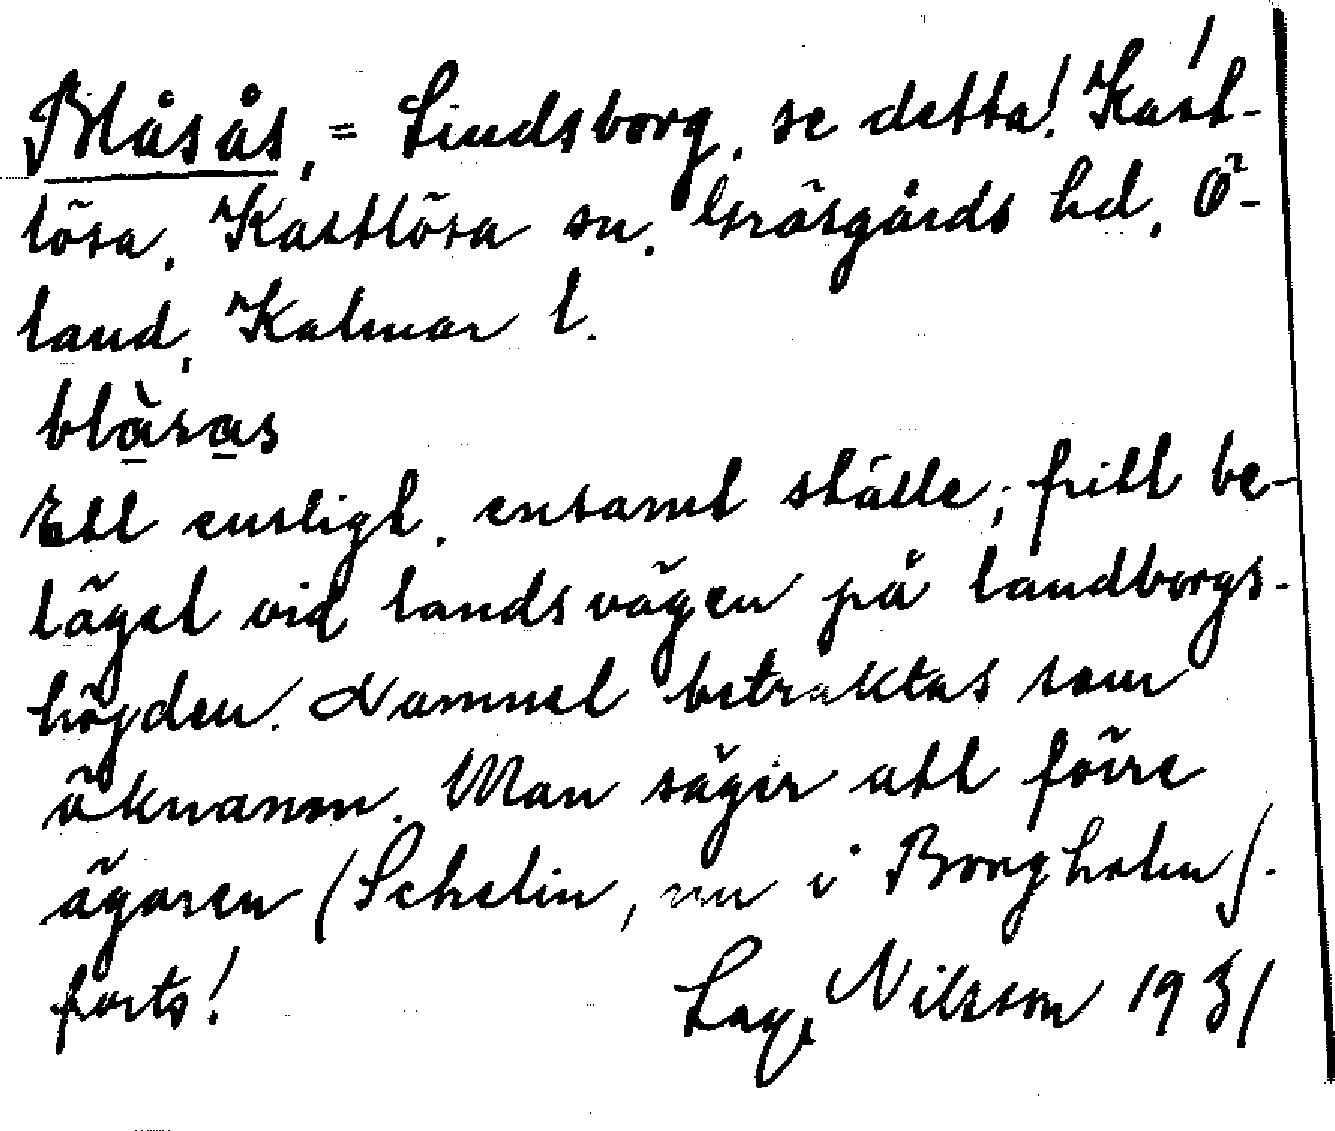 Blåsås, = Lindsborg, se detta! Kast-
lösa, Kastlösa sn, Gräsgårds hd, Ö-
land, Kalmar l.
blàsas
Ett ensligt, ensamt ställe, fritt be-
läget vid landsvägen på landborgs-
höjden. Namnet betraktas som
öknamn. Man säger att förre
ägaren (Schelin, nu i Borgholm).
forts! Nilsson 1931